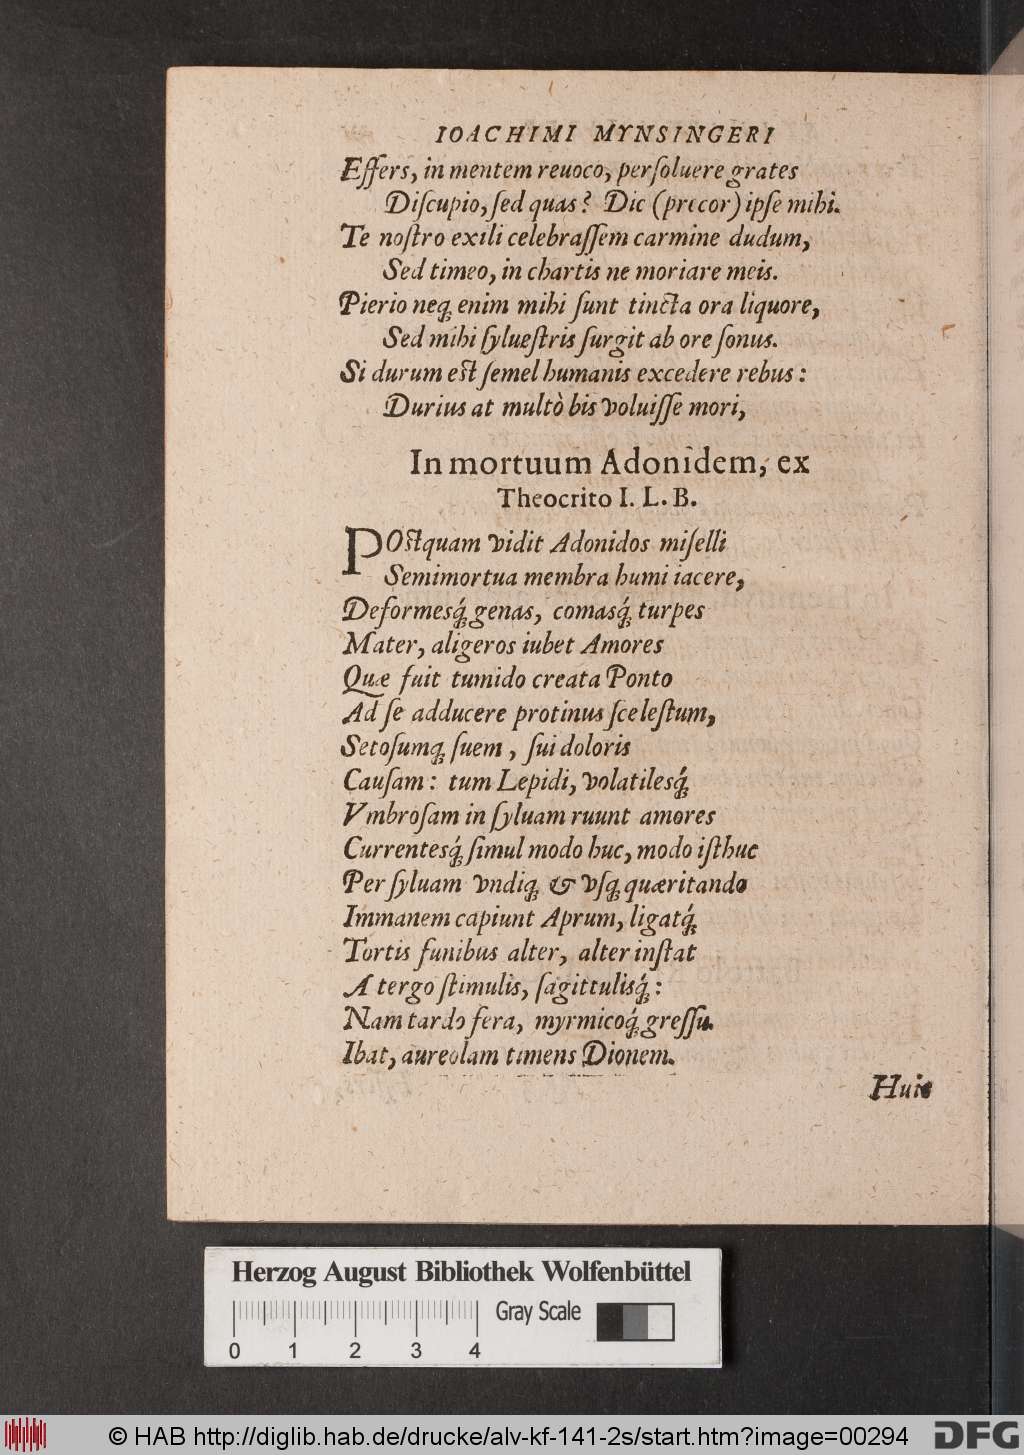 IOACHIMI MYNSINGERI
Eſſers, in mentem reuoco, perſoluere grates
Diſcupio, ſed quas? Dic (precor) ipſe mihi.
Te noſtro exili celebraſſem carmine dudum,
Sed timeo, in chartis ne moriare meis.
Pierio neqꝫ enim mihi ſunt tincta ora liquore,
Sed mihi ſylueſtris ſurgit ab ore ſonus.
Si durum eſt ſemel humanis excedere rebus:
Durius at multò bis voluiſſe mori,
In mortuum Adonidem, ex
Theocrito I. L. B.
POſtquam vidit Adonidos miſelli
Semimortua membra humi iacere,
Deformesq́ꝫ genas, comasq́ꝫ turpes
Mater, aligeros iubet Amores
Quæ fuit tumido creata Ponto
Ad ſe adducere protinus ſceleſtum,
Setoſumqꝫ ſuem, ſui doloris
Cauſam: tum Lepidi, volatilesq́ꝫ
Vmbroſam in ſyluam ruunt amores
Currentesq́ꝫ ſimul modo huc, modo iſthuc
Per ſyluam vndiqꝫ & vſqꝫ quæritando
Immanem capiunt Aprum, ligatq́ꝫ
Tortis funibus alter, alter inſtat
A tergo ſtimulis, ſagittulisq́ꝫ:
Nam tardo fera, myrmicoq́ꝫ greſſu.
Ibat, aureolam timens Dionem.
Huic
Herzog August Bibliothek Wolfenbüttel
Gray Scale
0 1 2 3 4
© HAB http://diglib.hab.de/drucke/alv-kf-141-2s/start.htm?image=00294
DFG